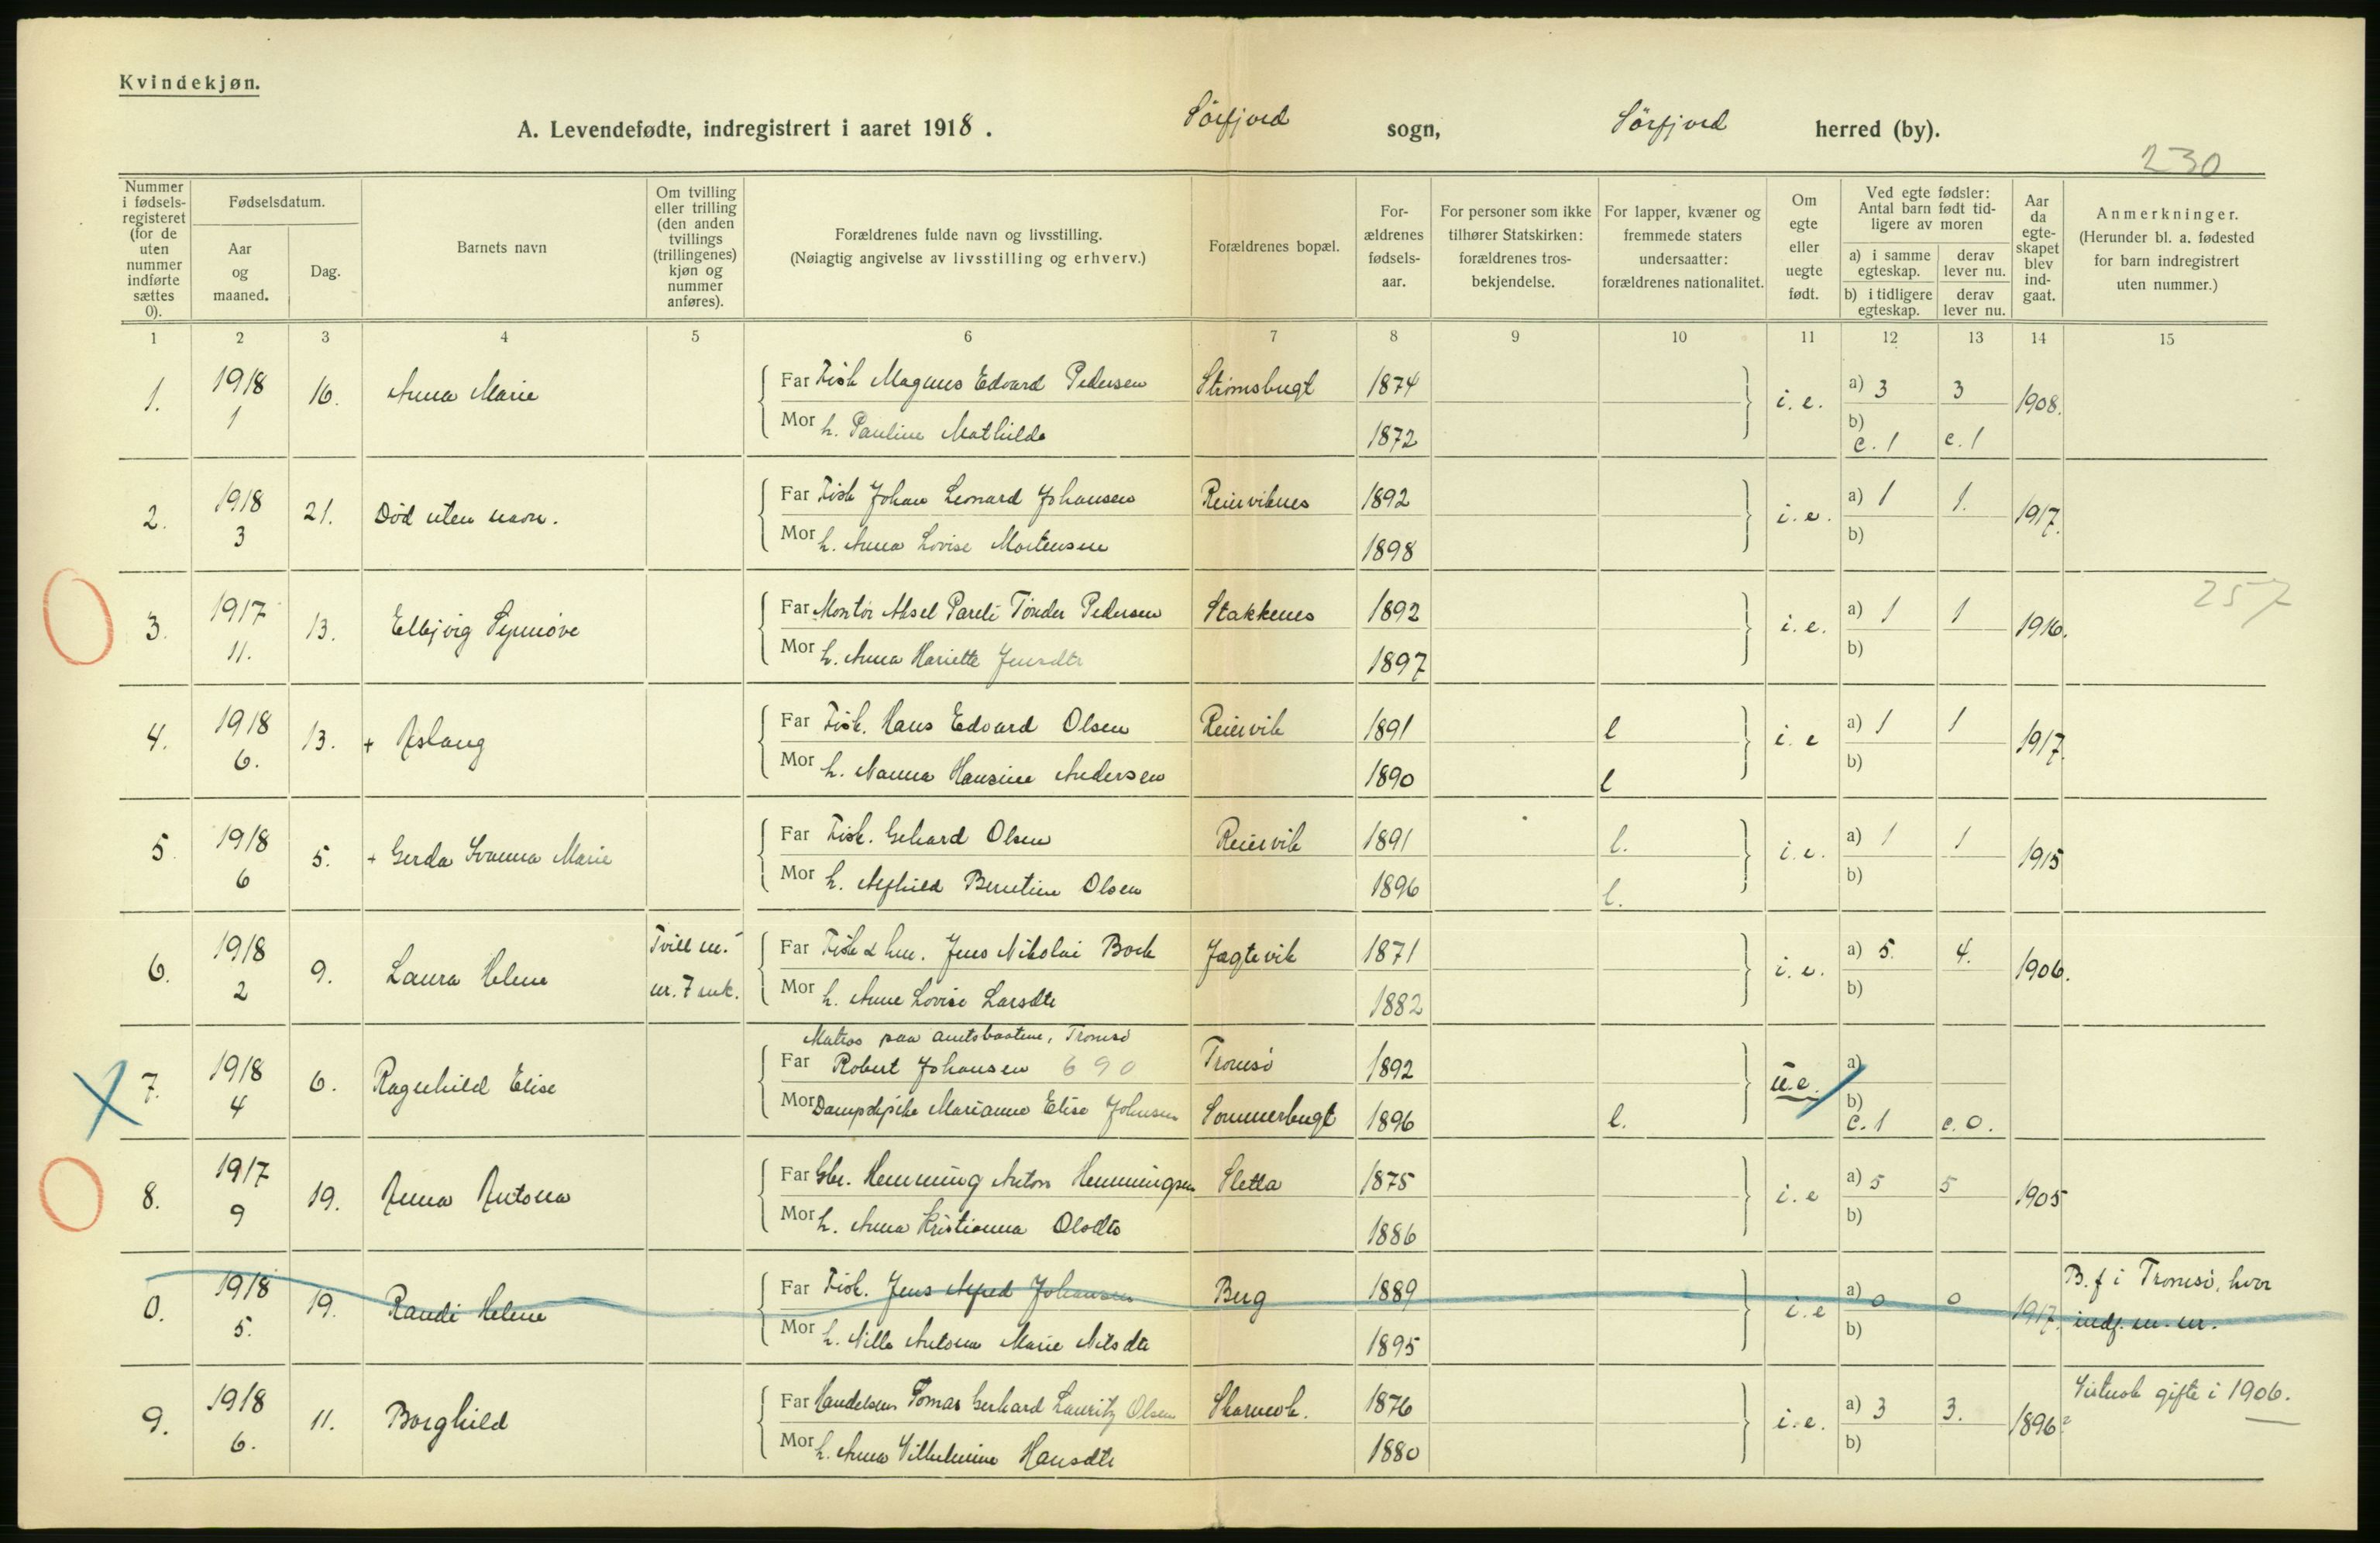 Kvindekjøn.
A. Levendefødte, indregistrert i aaret 1918. Sörfjord sogn, Sörfjord herred (by).
230
Nummer i fødsels-registeret (for de uten nummer indførte sættes 0).
Fødselsdatum.
Aar og maaned.
Dag.
Barnets navn
Om tvilling eller trilling (den anden tvillings (trillingenes) kjøn og nummer anføres).
Forældrenes fulde navn og livsstilling.
(Nøiagtig angivelse av livsstilling og erhverv.)
Forældrenes bopæl.
For-ældrenes fødsels-aar.
For personer som ikke tilhører Statskirken: forældrenes tros-bekjendelse.
For lapper, kvæner og fremmede staters undersaatter: forældrenes nationalitet.
Om egte eller uegte født.
Ved egte fødsler: Antal barn født tid-ligere av moren
a) i samme egteskap.
derav lever nu.
b) i tidligere egteskap.
derav lever nu.
Aar da egte-skapet blev ind-gaat.
Anmerkninger.
(Herunder bl. a. fødested for barn indregistrert uten nummer.)
1 2 3 4 5 6 7 8 9 10 11 12 13 14 15
1. 1918 1 16. Anna Marie Far Fisk Magnus Edvard Pedersen Strömsbugt 1874 i. e. a) 3 3 1908.
Mor h. Pauline Mathilde 1872 b) c. 1 c. 1
2. 1918 3 21. Död uten navn. Far Fisk Johan Leonard Johansen Reierviknes 1892 i. e. a) 1 1. 1917.
Mor h. Anna Lovise Mortensen 1898 b)
257
3. 1917 11. 13. Synnöve Far Montör Aksel Pareli Tönder Pedersen Stakkenes 1892 i. e. a) 1 1 1916.
Mor h. Anna Hariette Jensdtr 1897 b)
4. 1918 6. 13. + Aslaug Far Fisk. Hans Edvard Olsen Reiervik 1891 l i. e a) 1 1 1917.
Mor h. Nanna Hansine Andersen 1890 l b)
5. 1918 6 5. + Gerda Ivanna Marie Far Fisk. Gehard Olsen Reiervik 1891 l. i. e. a) 1 1 1915
Mor h. Alfhild Berntine Olsen 1896 l. b)
6. 1918 2 9. Laura Helene Tvill m. Far Fisk & hus. Jens Nikolai Bock Jagtevik 1871 i. e. a) 5. 4. 1906.
nr. 7 mk. Mor h. Anne Lovise Larsdtr 1882 b)
Matros paa amtsbaatene, Tromsö
7. 1918 4 6. Ragnhild Elise Far Robert Johansen 690 Tromsö 1892 u.e. a)
Mor Marianne Elise Johnsen Sommerbugt 1896 l. b) c. 1 c. 0.
8. 1917 9 19. Anna Antona Far Gbr. Hemming Anton Hemmingsen Sletta 1875 i. e a) 5 5 1905
Mor h. Anna Kristianna Olsdtr 1886 b)
0. 1918 5. 19. Randi Helene Far Fisk. Jens Alfred Johansen Berg 1889 i. e a) 0 0 1917. B. f i Tromsö, hvor
Mor h. Nille Antona Marie Nilsdtr 1895 b) indf. m. nr.
9. 1918 6. 11. Borghild Far Handelsm Tomas Gerhard Lauritz Olsen 1876 i. e. a) 3 3. 1896? gifte i 1906.
Mor h. Anna Vilhelmine Hansdtr 1880 b)